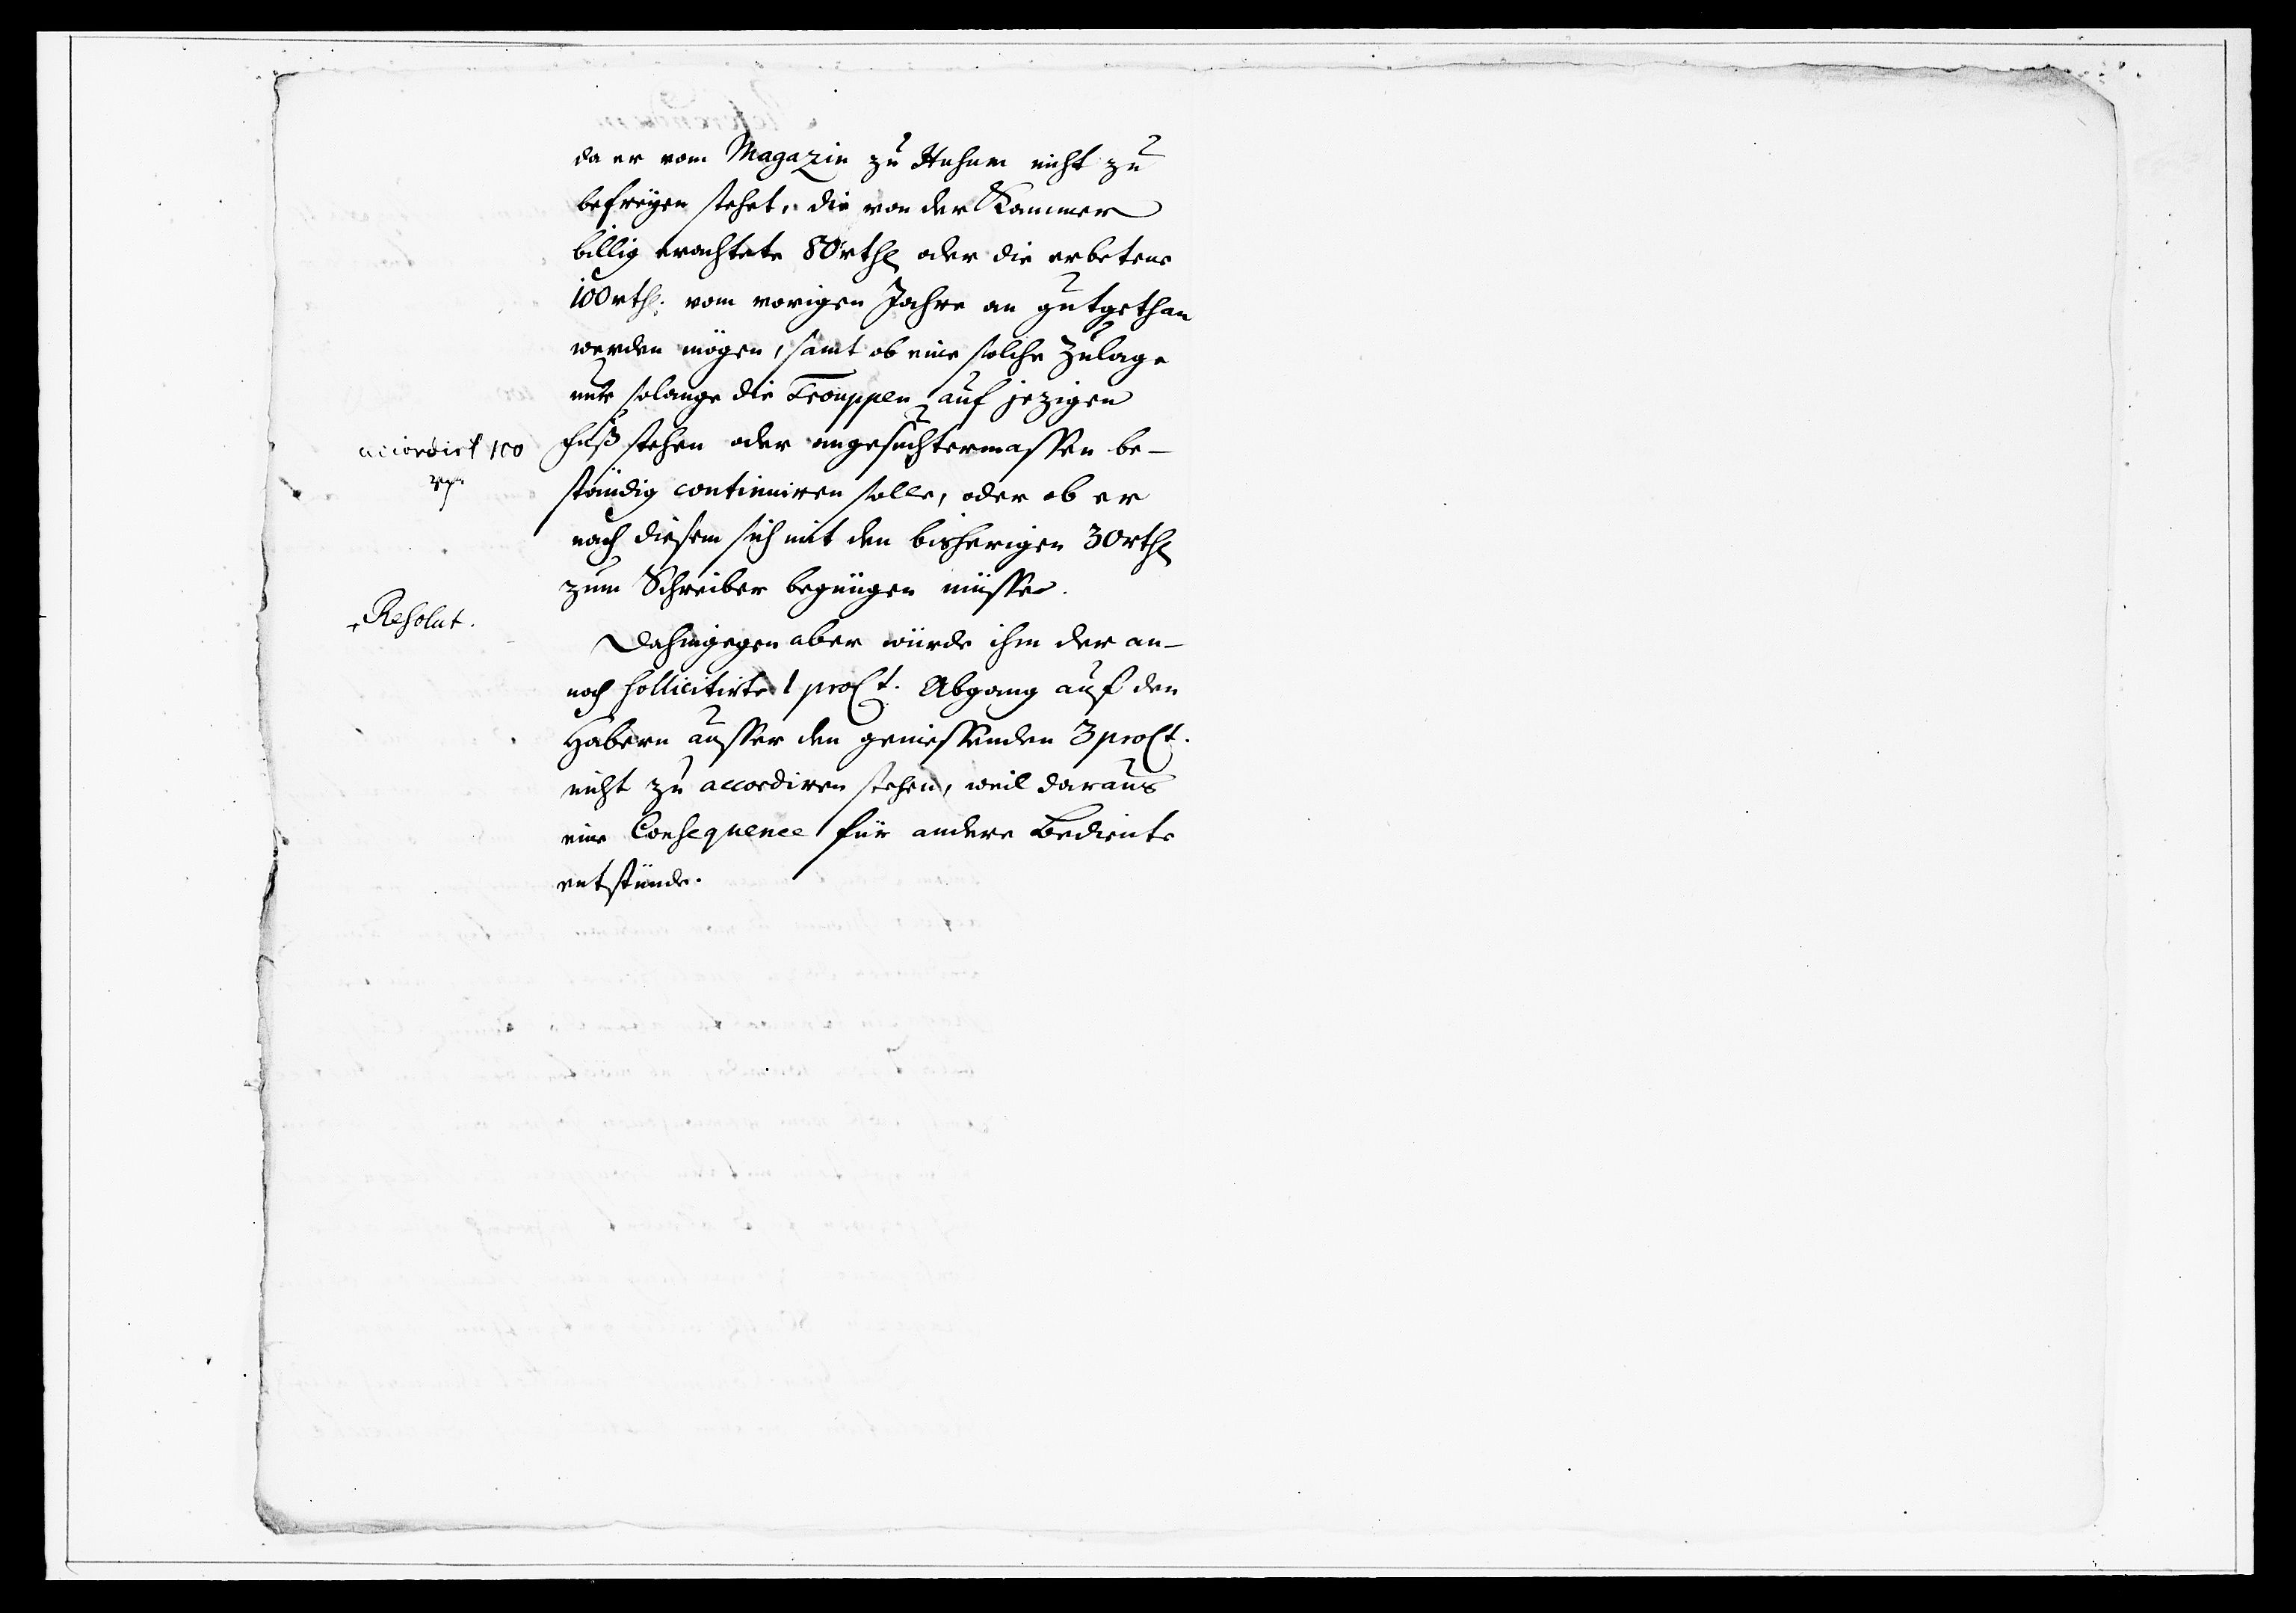 da er vom Magazin zu Husum nicht zu
befreyen stehet, die von der Kammer
billig erachtete 80 rthl oder die erbetene
100 rthl. vom vorigen Jahre an gutgethan
werden mögen, samt ob eine solche Zulage
nur solange die Trouppen auf jezigen
Fuß stehen oder angesuchtermassen be-
accordirt 100
ständig continuiren solle, oder ob er
nach diesem sich mit den bisherigen 30 rthl
zum Schreiber begnügen müsse.
Resolut.
Dahingegen aber würde ihm der an-
noch sollicitirte 1 proCt. Abgang auf den
Habern ausser den geniessenden 3 proCt.
nicht zu accordiren stehen, weil daraus
eine Consequence für andere Bediente
entstünde.